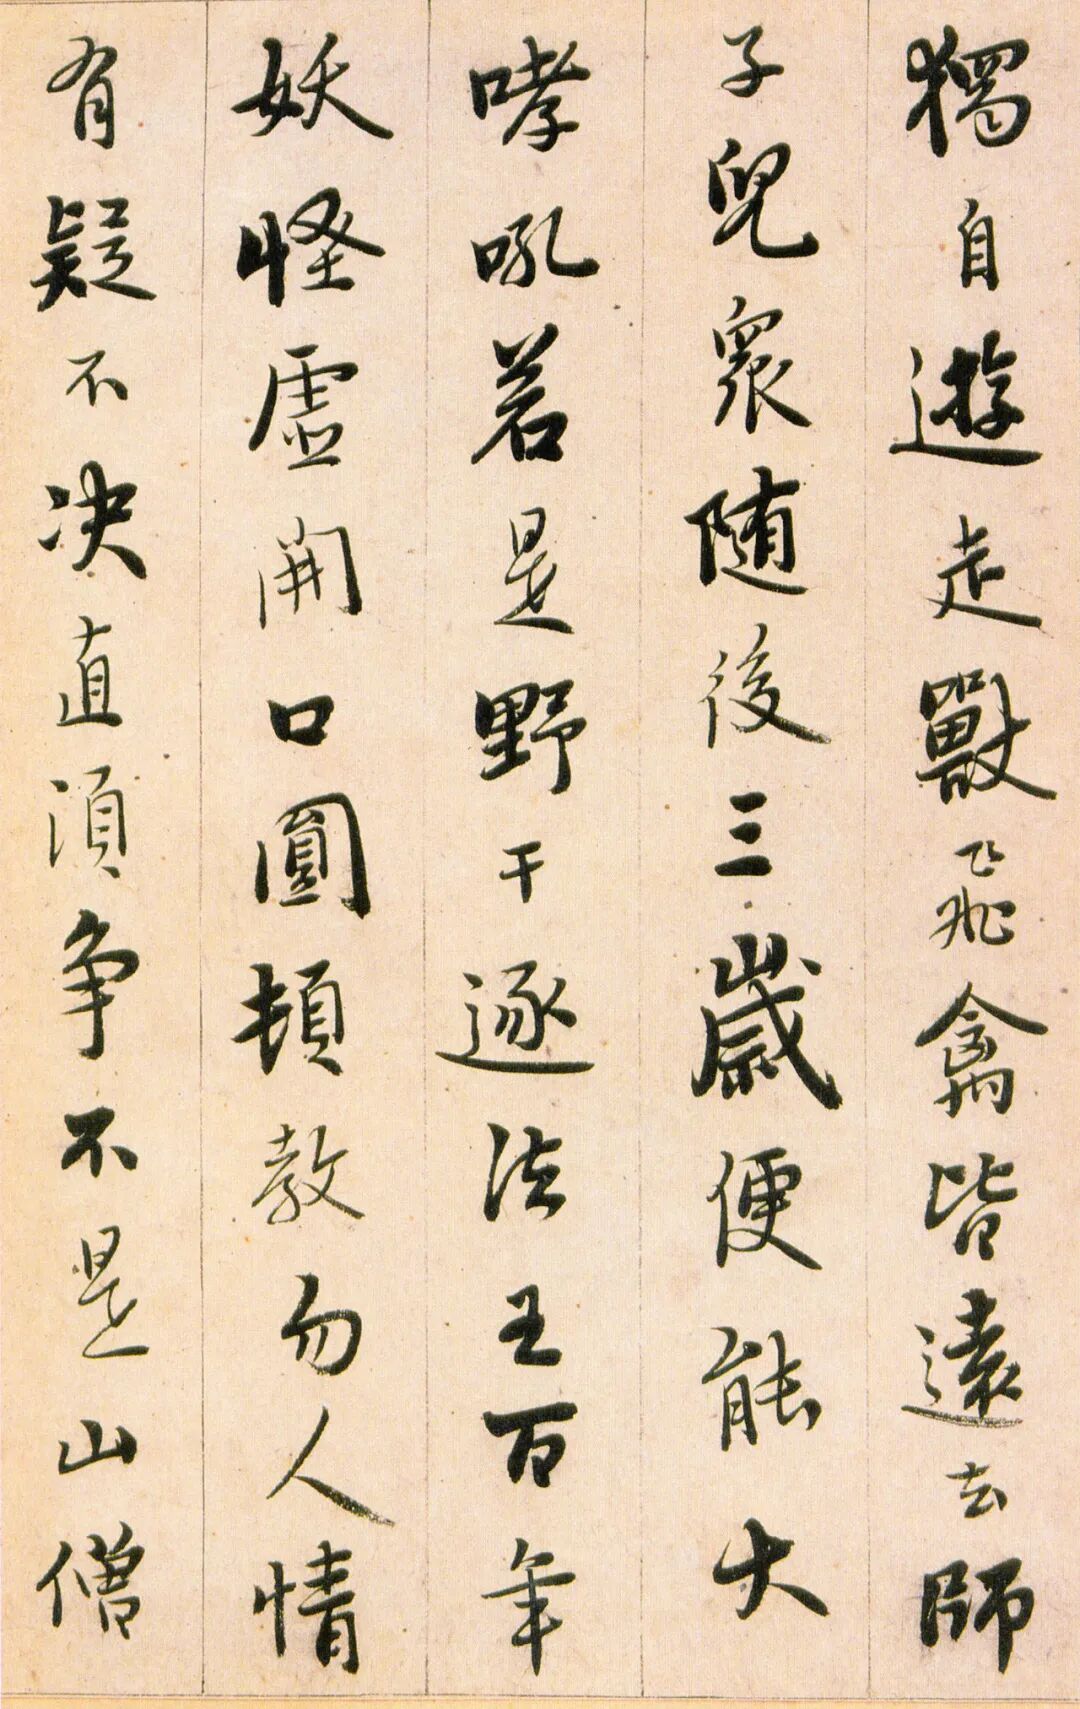 獨自遊走獸飛禽皆遠去師
子兒衆随後三歲便能大
哮吼若是野干逐法王百年
妖怪虚開口圓頓教勿人情
有疑不决直須争不是山僧